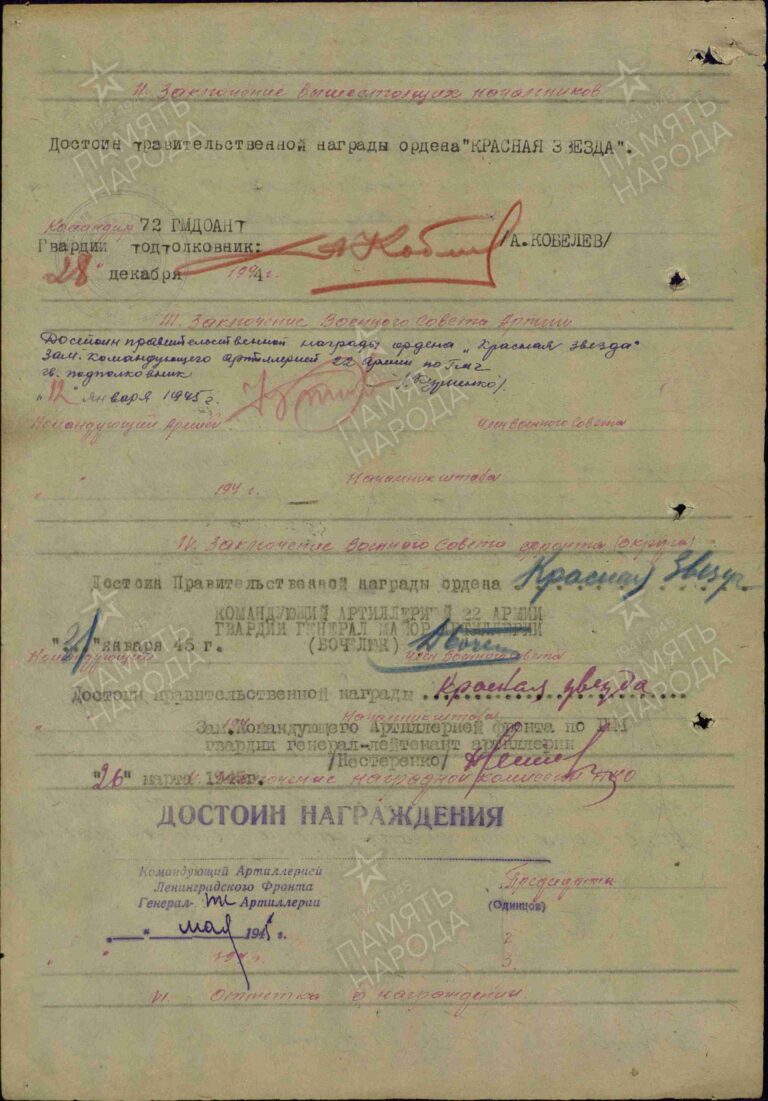 II. Заключение вышестоящих начальников
Достоин правительственной награды ордена "КРАСНАЯ ЗВЕЗДА".
Командир 72 ГМДОАНТ
Гвардии подполковник: /А. КОБЕЛЕВ/
"28" декабря 1944 г.
III. Заключение Военного Совета Армии
Достоин правительственной награды ордена "Красная звезда"
Зам. командующего артиллерией 22 Армии по ГМЧ
гв. подполковник
"12" января 1945 г.
Командующий Армией Член Военного Совета
Начальник штаба
" " 194 г.
IV. Заключение Военного Совета фронта (округа)
Достоин Правительственной награды ордена Красная Звезда
КОМАНДУЮЩИЙ АРТИЛЛЕРИЕЙ 22 АРМИИ
ГВАРДИИ ГЕНЕРАЛ МАЙОР АРТИЛЛЕРИИ
"21" января 45 г. (БОЧЕЛЮК)
Командующий Член Военного Совета
Достоин правительственной награды красная звезда
Начальник штаба
Зам. Командующего Артиллерией фронта по
гвардии генерал-лейтенант артиллерии
/Нестеренко/
"26" марта 1945г. Заключение наградной комиссии НКО
ДОСТОИН НАГРАЖДЕНИЯ
Командующий Артиллерией
Ленинградского Фронта
Генерал- Артиллерии
Председатель
(Одинцов)
" " май 1945 г.
2
" " 194 г.
3
VI. Отметка о награждении
ПАМЯТЬ
НАРОДА
1941-1945